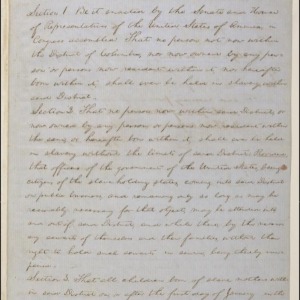 Section 1 Be it enacted by the Senate and House
of Representatives of the United States of America in
Congress assembled That no person not now within
the District of Columbia, nor now owned by any per-
son or persons now resident within it, nor hereafter
born within it, shall ever be held in slavery within
said District.
Section 2. That no person now within said District, or
now owned by any person or persons now resident within
the same, or hereafter born within it, shall ever be held
in slavery without the limits of said District: Provided
that officers of the government of the United States, being
citizens of the slave-holding states, coming into said District
on public business, and remaining only so long as may be
reasonably necessary for that object, may be attended into
and out of said District, and while there, by the necess-
ary servants of themselves and their families, without their
right to hold such servants in service being thereby im-
paired.
Section 3. That all children born of slave mothers with
in said District on, or after the first day of January in the